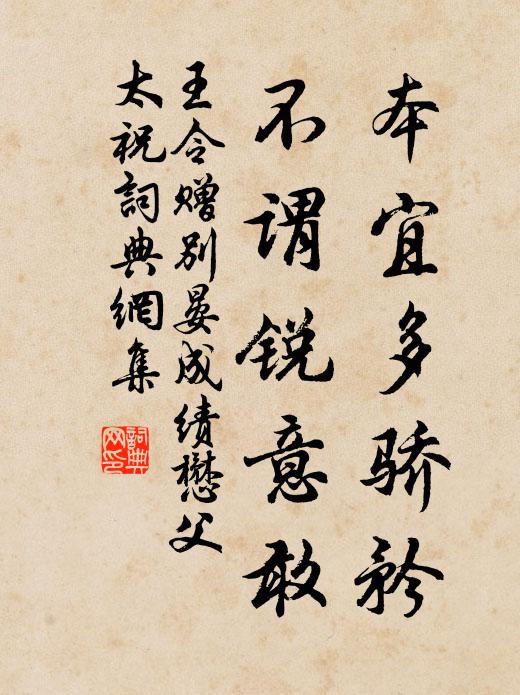 本宜多骄矜
不谓锐意敢
王令赠别晏成绩懋父
太祝詞典網集
詞典网印